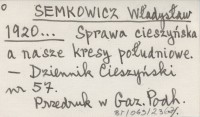 SEMKOWICZ Władysław
1920... Sprawa cieszyńska
a nasze kresy południowe.
– Dziennik Cieszyński
nr 57.
Przedruk w Gaz. Podh.